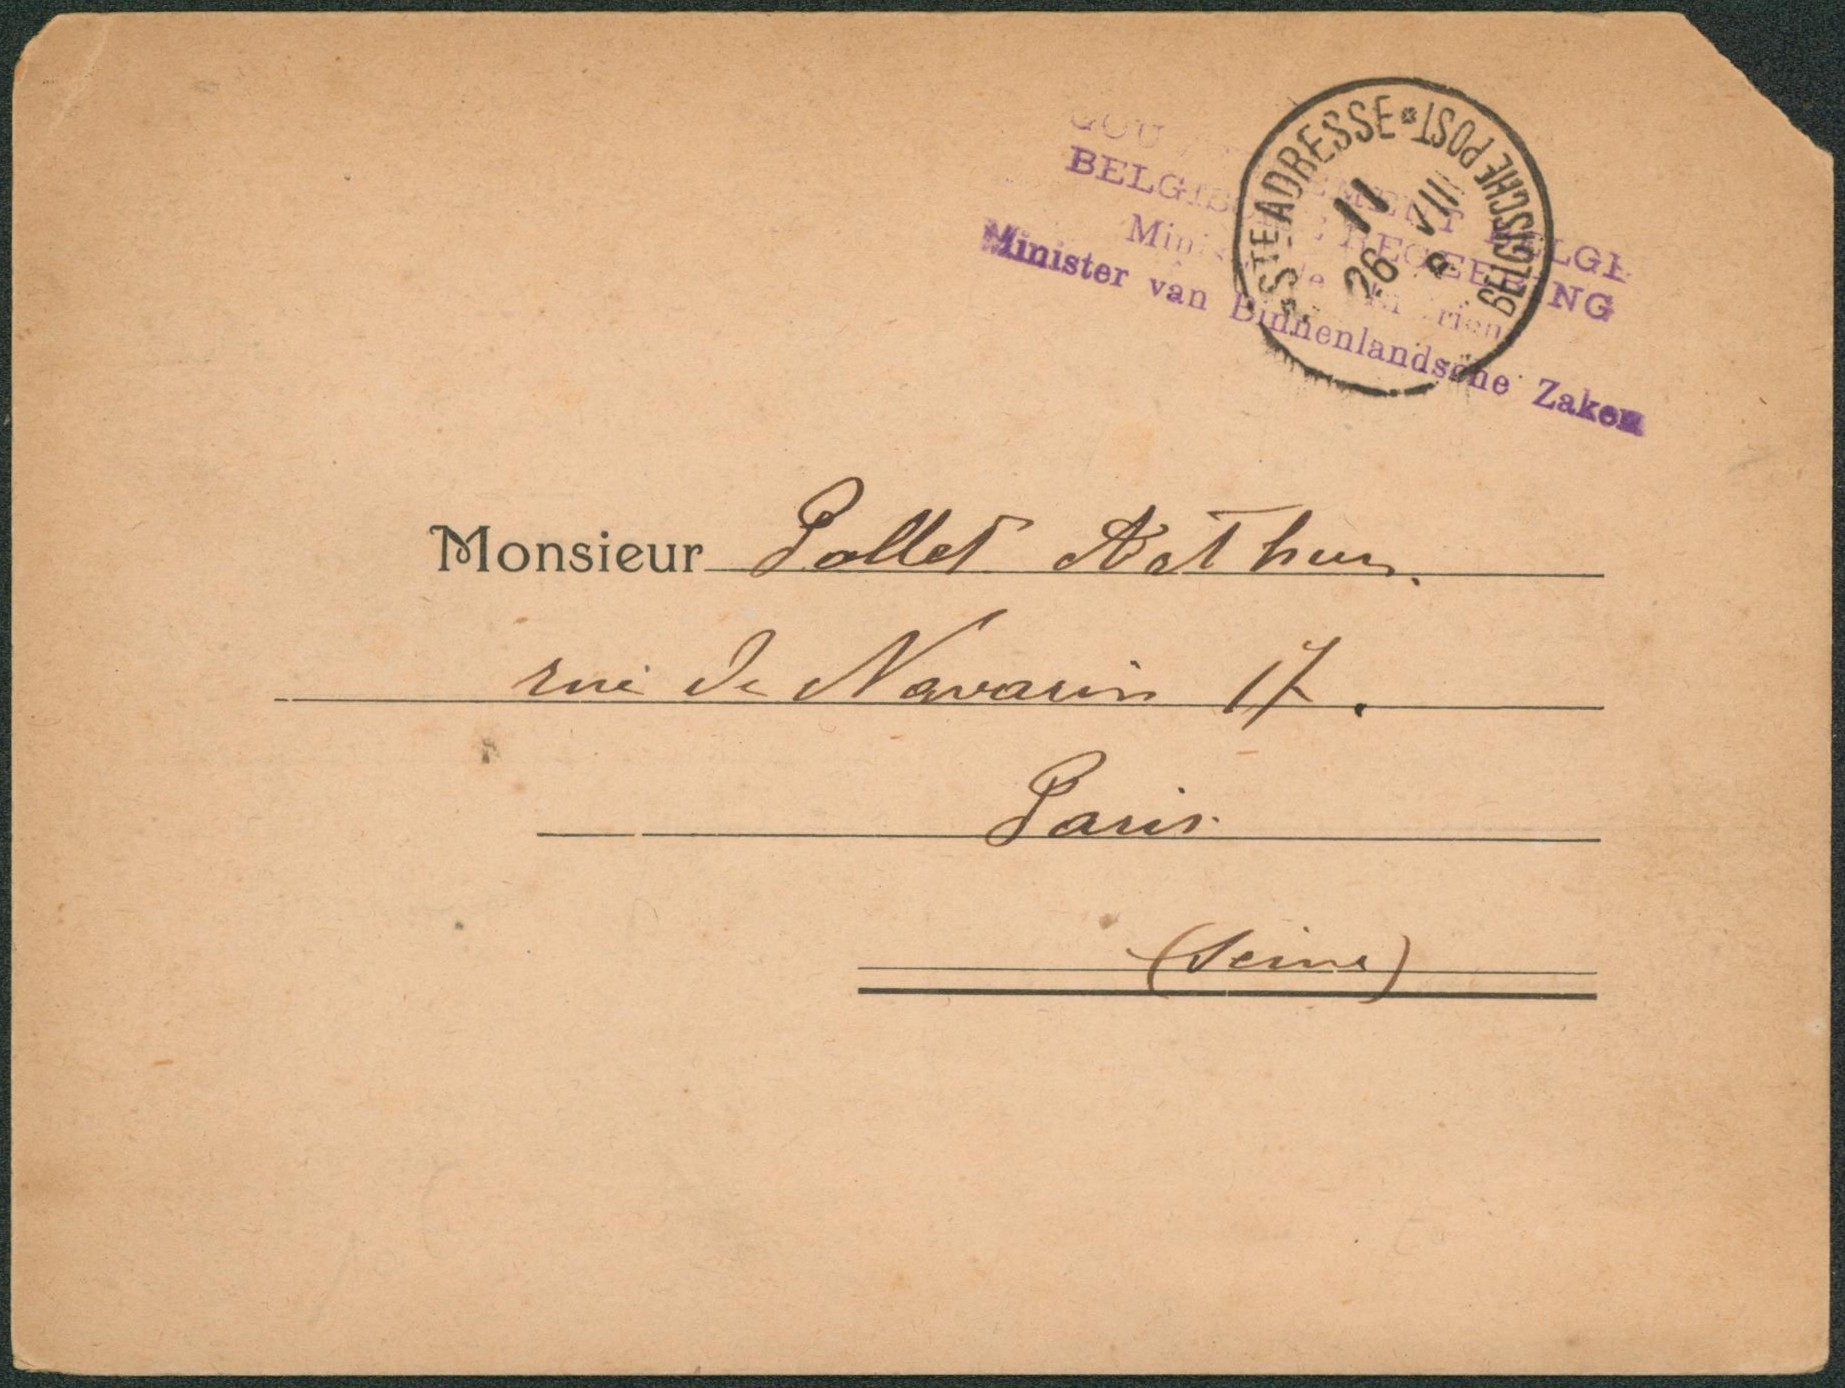 BELGISCHE REGEERING
Minister van Binnenlandsche Zaken
STE ADRESSE * BELGISCHE POST *
11
26 VIII
Monsieur Pollet Arthur.
rue de Navarin 17.
Paris.
(Seine)